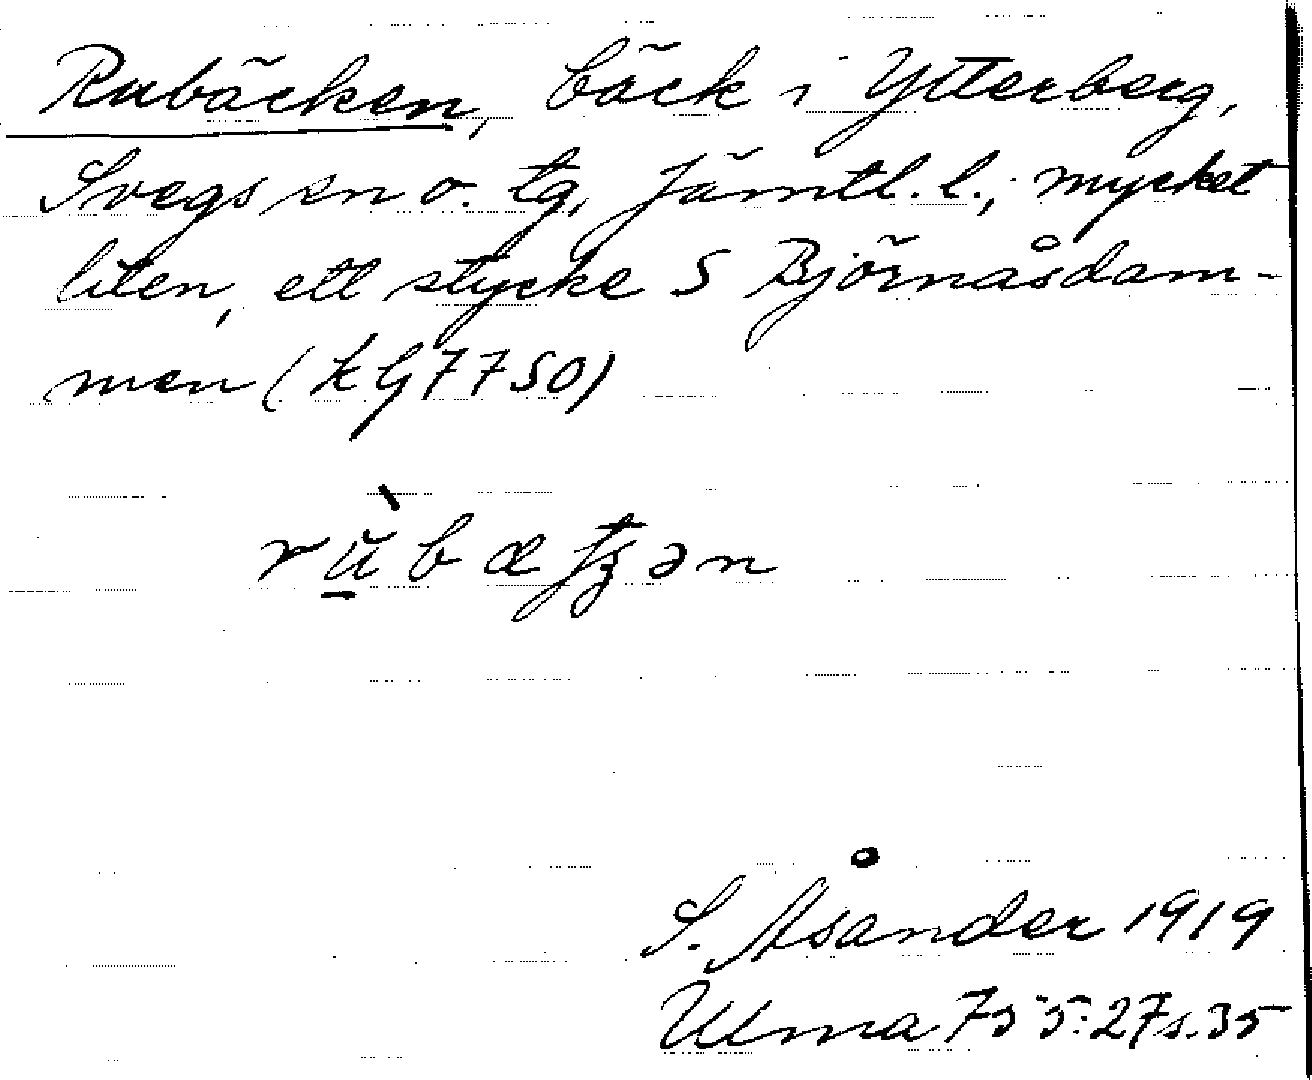 Rubäcken, bäck i Ytterberg,
Svegs sn o. tg, Jämtl. l.; mycket
liten, ett stycke S Björnåsdam-
men (kG7750)
rùbætʒən
S. Åsander 1919
Ulma 735:27 s. 35